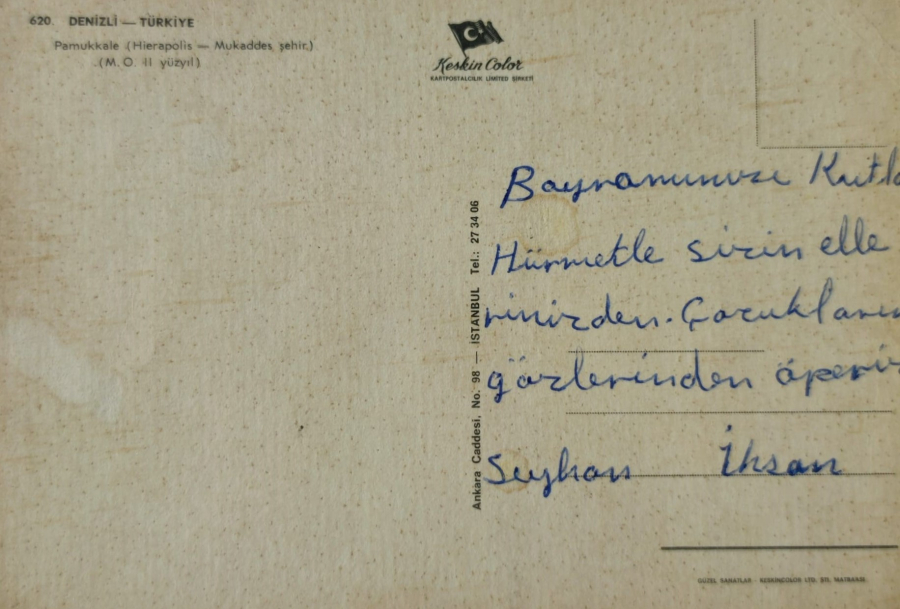 620. DENİZLİ — TÜRKİYE
Pamukkale (Hierapolis — Mukaddes şehir.)
(M. O. II yüzyıl)
Keskin Color
KARTPOSTALCILIK LİMİTED ŞİRKETİ
Ankara Caddesi, No. 98 — İSTANBUL Tel.: 27 34 06
Bayramınızı Kutla
Hürmetle sizin elle
rinizden. Çocukların
gözlerinden öperiz
Seyhan İhsan
GÜZEL SANATLAR - KESKİNCOLOR LTD. ŞTİ. MATBAASI